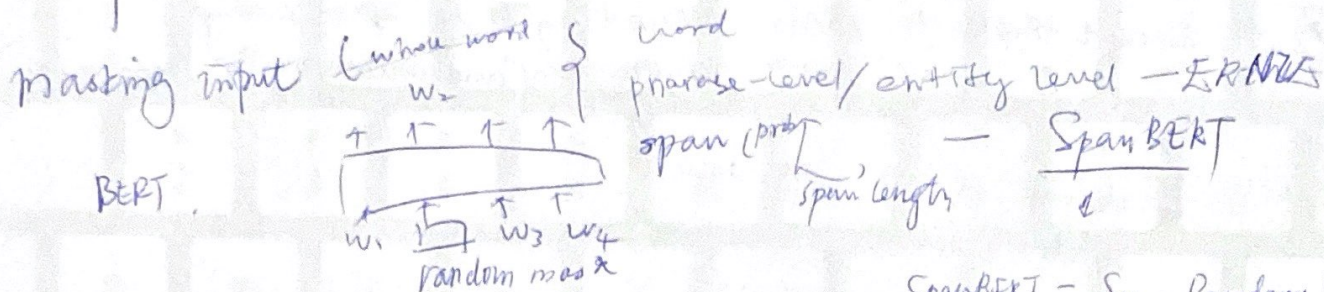 masking input (whole word { word
w₂ pharase-level/entity level — ERNIE
span (prob — SpanBERT
span length
BERT.
w₁ w₃ w₄
random mask
SpanBERT - S